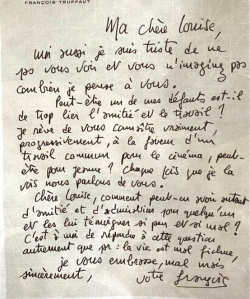 FRANÇOIS TRUFFAUT
Ma chère Louise,
moi aussi je suis triste de ne
pas vous voir et vous n'imaginez pas
combien je pense à vous.
Peut-être un de mes défauts est-il
de trop lier l'amitié et le travail ?
Je rêve de vous connaître vraiment,
progressivement, à la faveur d'un
travail commun pour le cinéma, peut-
être pour ? Chaque fois que je la
vois nous parlons de vous.
Chère Louise, comment peut-on avoir autant
d'amitié et d'admiration pour quelqu'un
et les lui témoigner si peu et si mal ?
C'est à moi de répondre à cette question
autrement que par : la vie est mal fichue,
je vous embrasse, mal mais
sincèrement,
votre françois